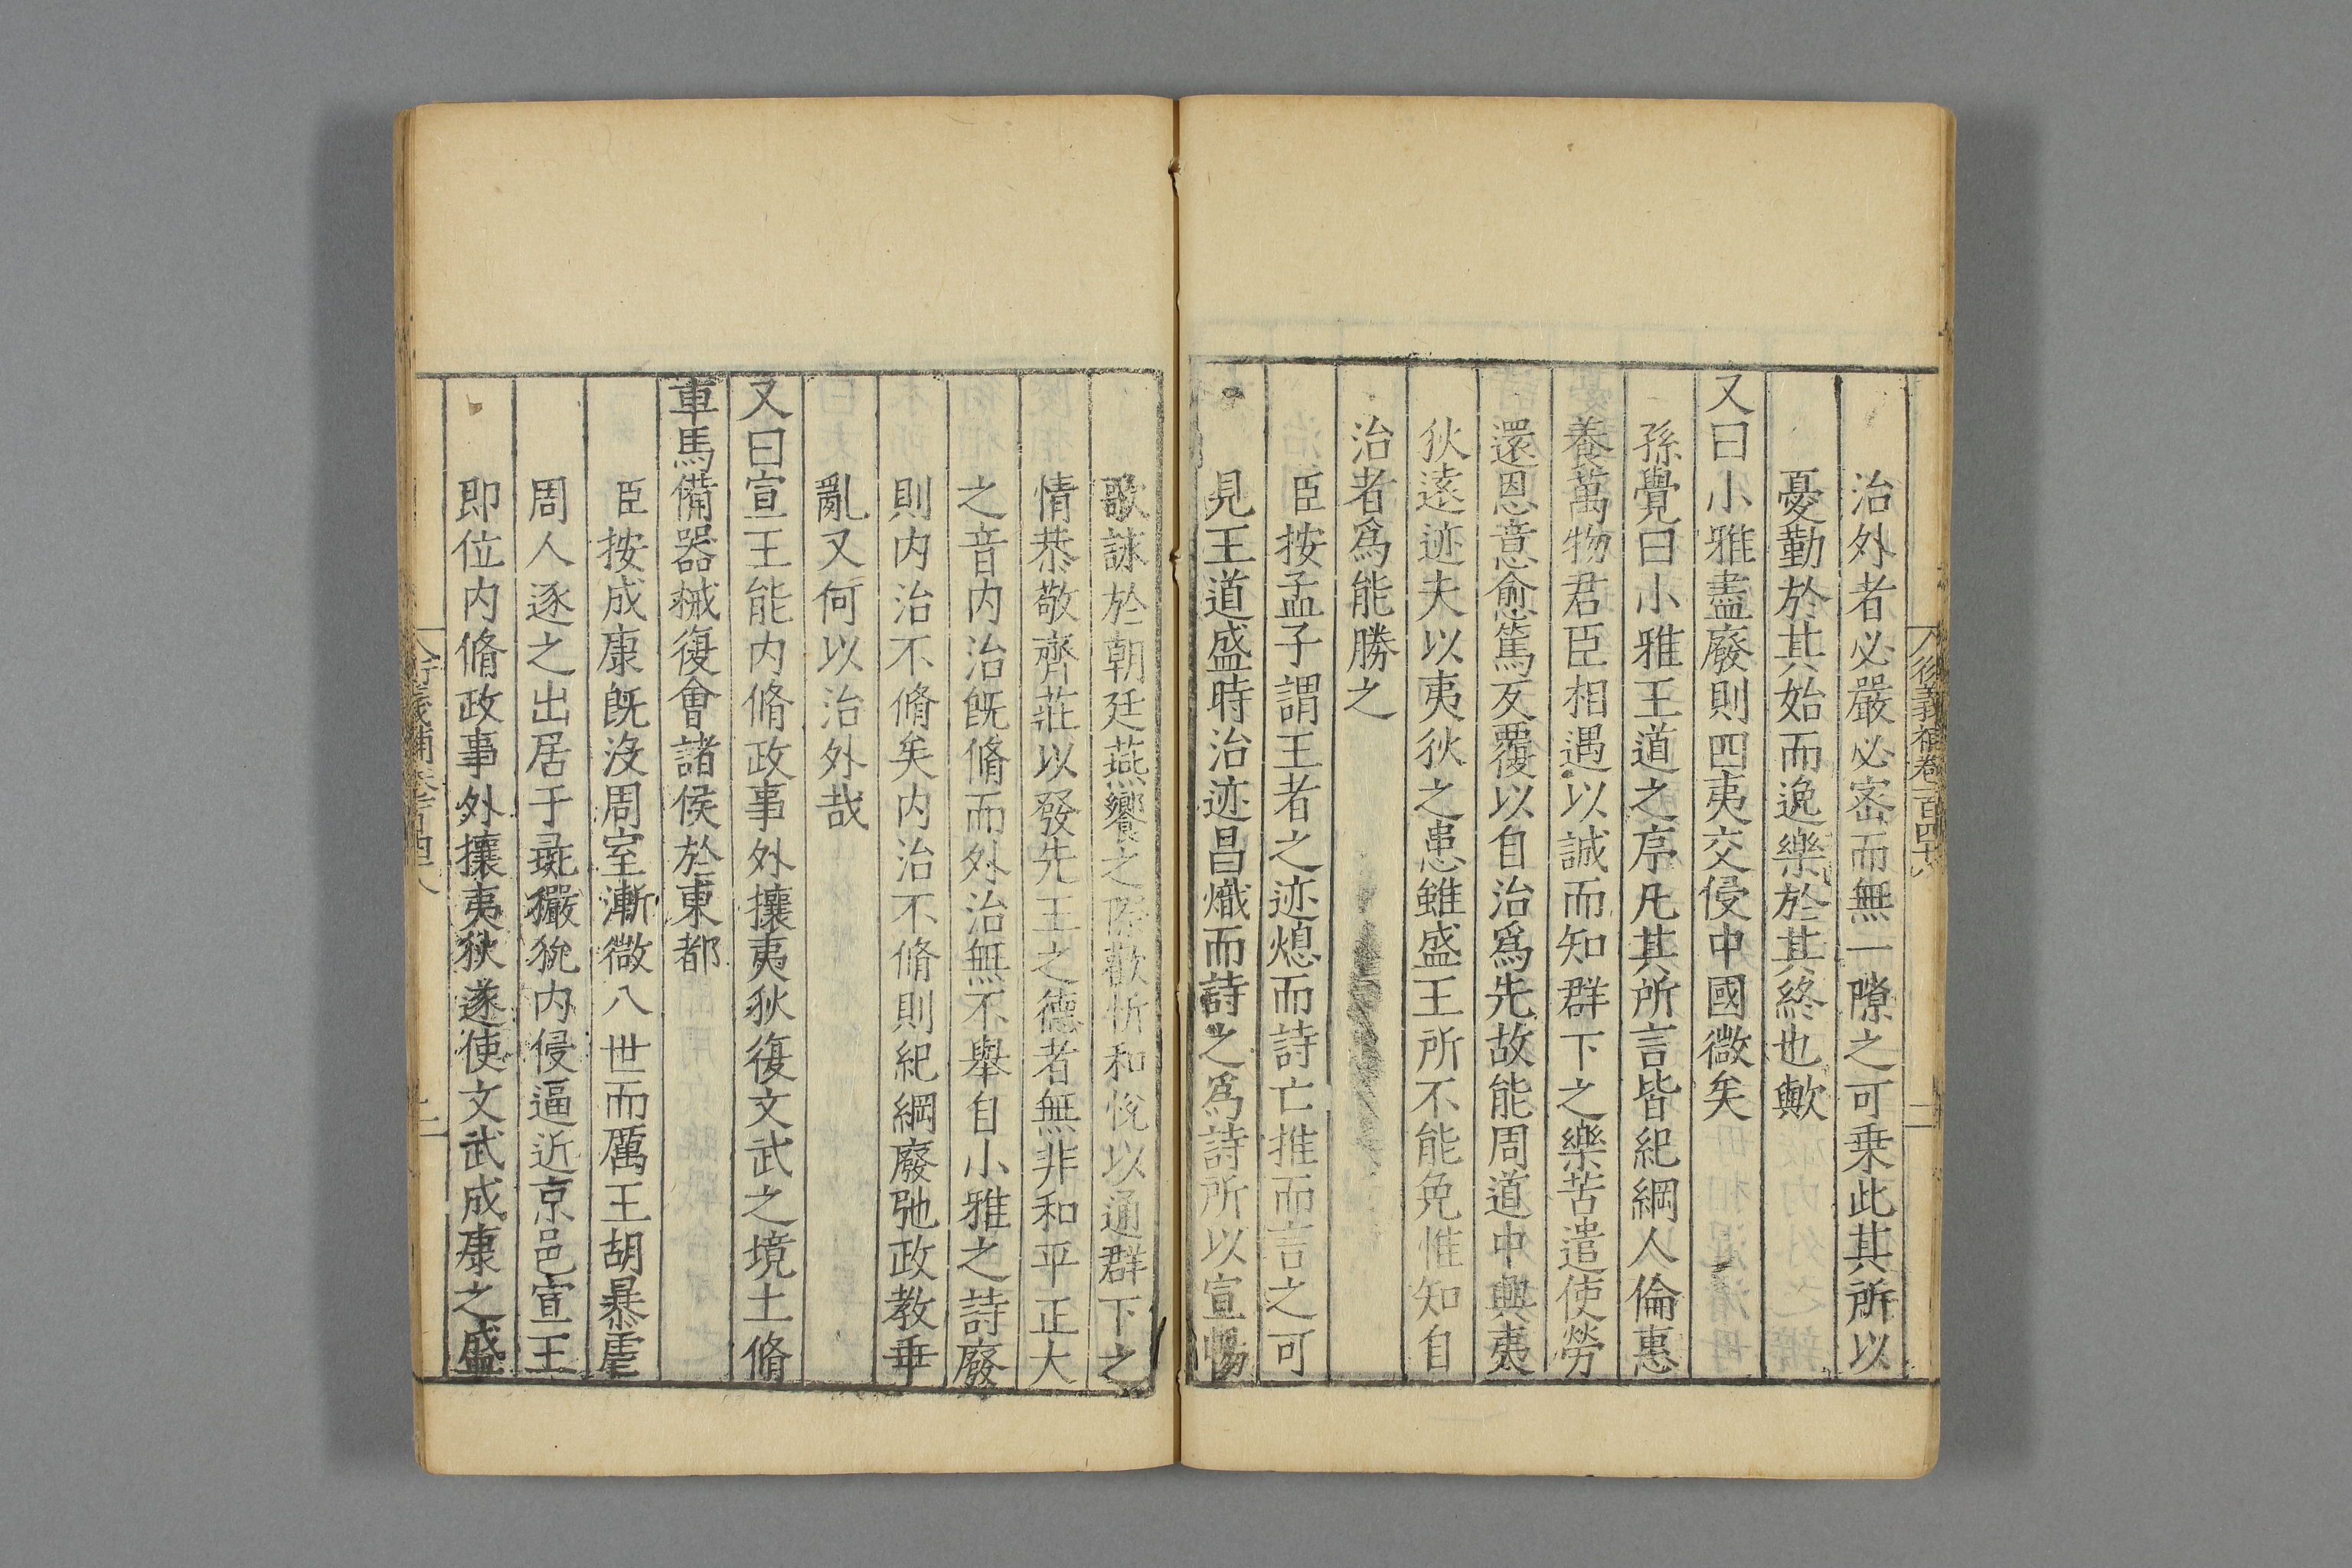 治外者必嚴必密而無一隙之可乗此其所以
憂勤於其始而逸樂於其終也歟
又曰小雅盡廢則四夷交侵中國微矣
孫覺曰小雅王道之序凡其所言皆紀綱人倫惠
養萬物君臣相遇以誠而知群下之樂苦遣使勞
還恩意愈篤反覆以自治爲先故能周道中興夷
狄遠迹夫以夷狄之患雖盛王所不能免惟知自
治者爲能勝之
臣按孟子謂王者之迹熄而詩亡推而言之可
見王道盛時治迹昌熾而詩之爲詩所以宣暢
歌詠於朝廷燕饗之際歡忻和悅以通群下之
情恭敬齊莊以發先王之德者無非和平正大
之音内治既脩而外治無不舉自小雅之詩廢
則内治不脩矣内治不脩則紀綱廢弛政教乖
亂又何以治外哉
又曰宣王能内脩政事外攘夷狄復文武之境土脩
車馬備器械復會諸侯於東都
臣按成康既沒周室漸微八世而厲王胡暴虐
周人逐之出居于彘玁狁内侵逼近京邑宣王
即位内脩政事外攘夷狄遂使文武成康之盛